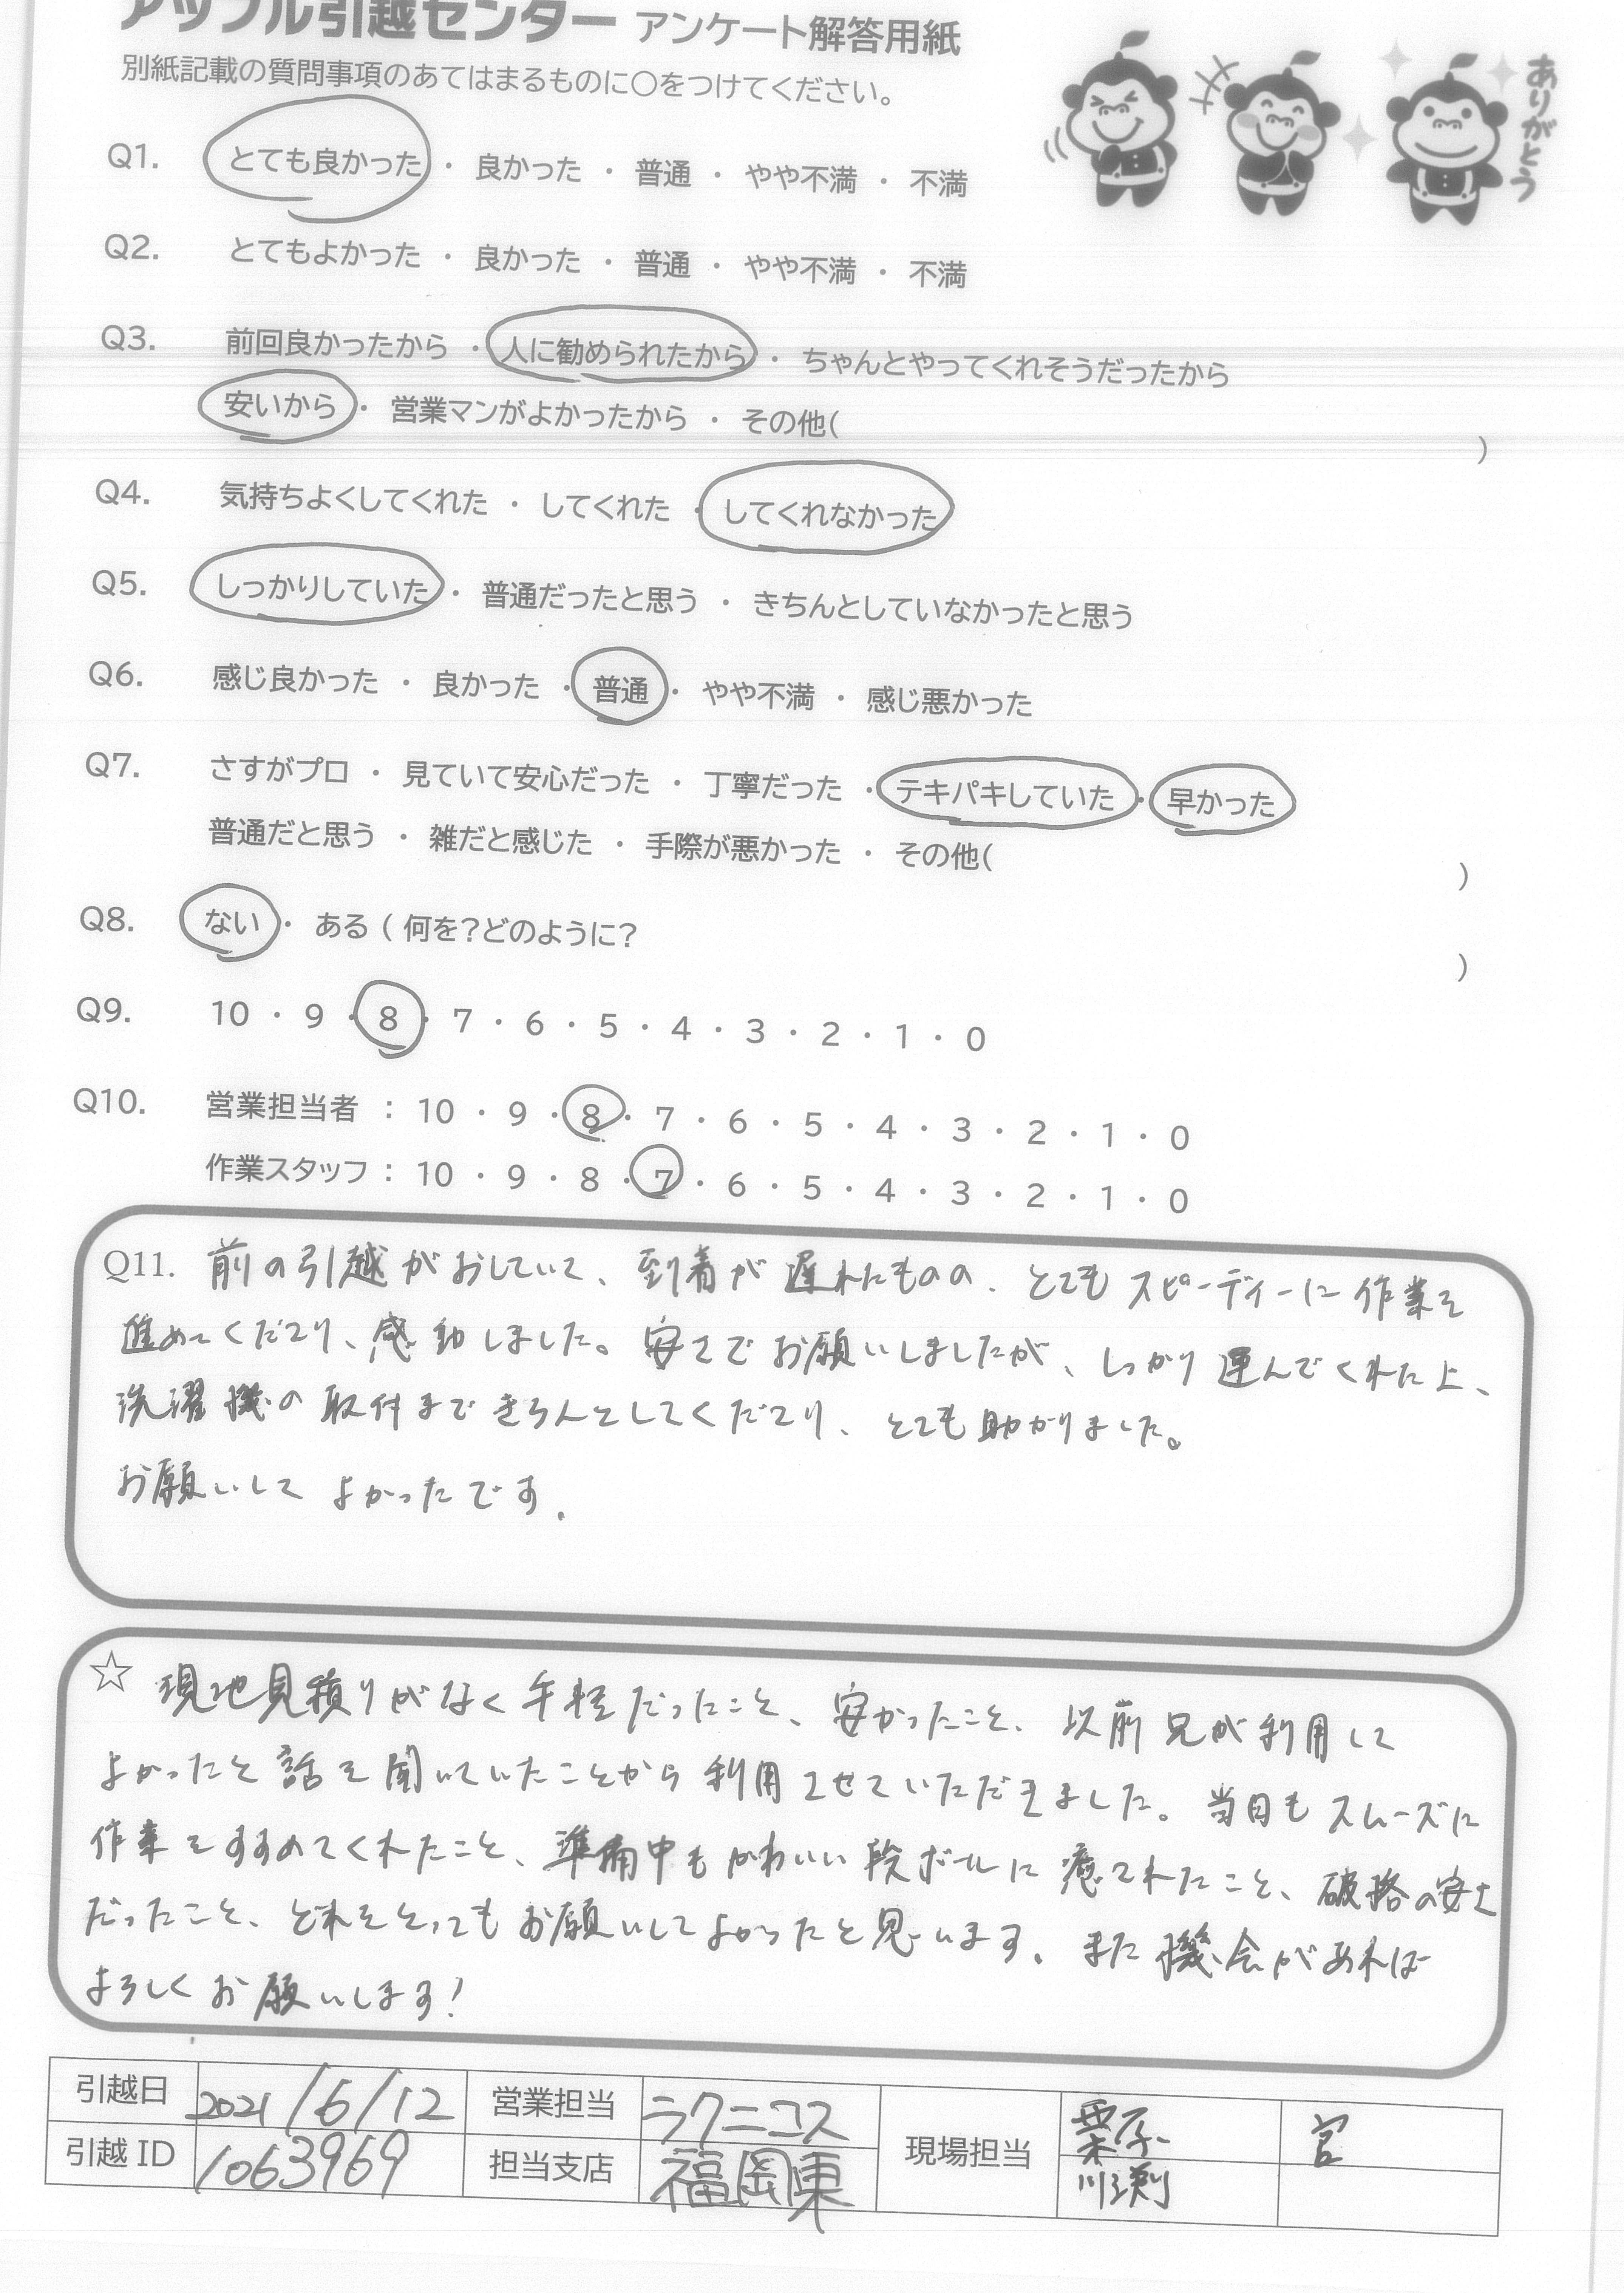 アップル引越センター アンケート解答用紙
別紙記載の質問事項のあてはまるものに〇をつけてください。
ありがとう
Q1. とても良かった ・ 良かった ・ 普通 ・ やや不満 ・ 不満
Q2. とてもよかった ・ 良かった ・ 普通 ・ やや不満 ・ 不満
Q3. 前回良かったから ・ 人に勧められたから ・ ちゃんとやってくれそうだったから
安いから ・ 営業マンがよかったから ・ その他( )
Q4. 気持ちよくしてくれた ・ してくれた ・ してくれなかった
Q5. しっかりしていた ・ 普通だったと思う ・ きちんとしていなかったと思う
Q6. 感じ良かった ・ 良かった ・ 普通 ・ やや不満 ・ 感じ悪かった
Q7. さすがプロ ・ 見ていて安心だった ・ 丁寧だった ・ テキパキしていた ・ 早かった
普通だと思う ・ 雑だと感じた ・ 手際が悪かった ・ その他( )
Q8. ない ・ ある ( 何を?どのように? )
Q9. 10 ・ 9 ・ 8 ・ 7 ・ 6 ・ 5 ・ 4 ・ 3 ・ 2 ・ 1 ・ 0
Q10. 営業担当者 : 10 ・ 9 ・ 8 ・ 7 ・ 6 ・ 5 ・ 4 ・ 3 ・ 2 ・ 1 ・ 0
作業スタッフ : 10 ・ 9 ・ 8 ・ 7 ・ 6 ・ 5 ・ 4 ・ 3 ・ 2 ・ 1 ・ 0
Q11. 前の引越がおしていて、到着が遅れたものの、とてもスピーディーに作業を
進めてくださり、感動しました。安さでお願いしましたが、しっかり運んでくれた上、
洗濯機の取付まできちんとしてくださり、とても助かりました。
お願いして よかったです.
☆ 現地見積りがなく手軽だったこと、安かったこと、以前兄が利用して
よかったと話を聞いていたことから利用させていただきました。当日もスムーズに
作業をすすめてくれたこと、準備中もかわいい段ボールに癒されたこと、破格の安さ
だったこと、どれをとってもお願いしてよかったと思います。また機会があれば
よろしくお願いします!
引越日 2021/6/12 営業担当 ラクニコス 現場担当 栗原 宮
引越ID 1063969 担当支店 福岡東 川渕